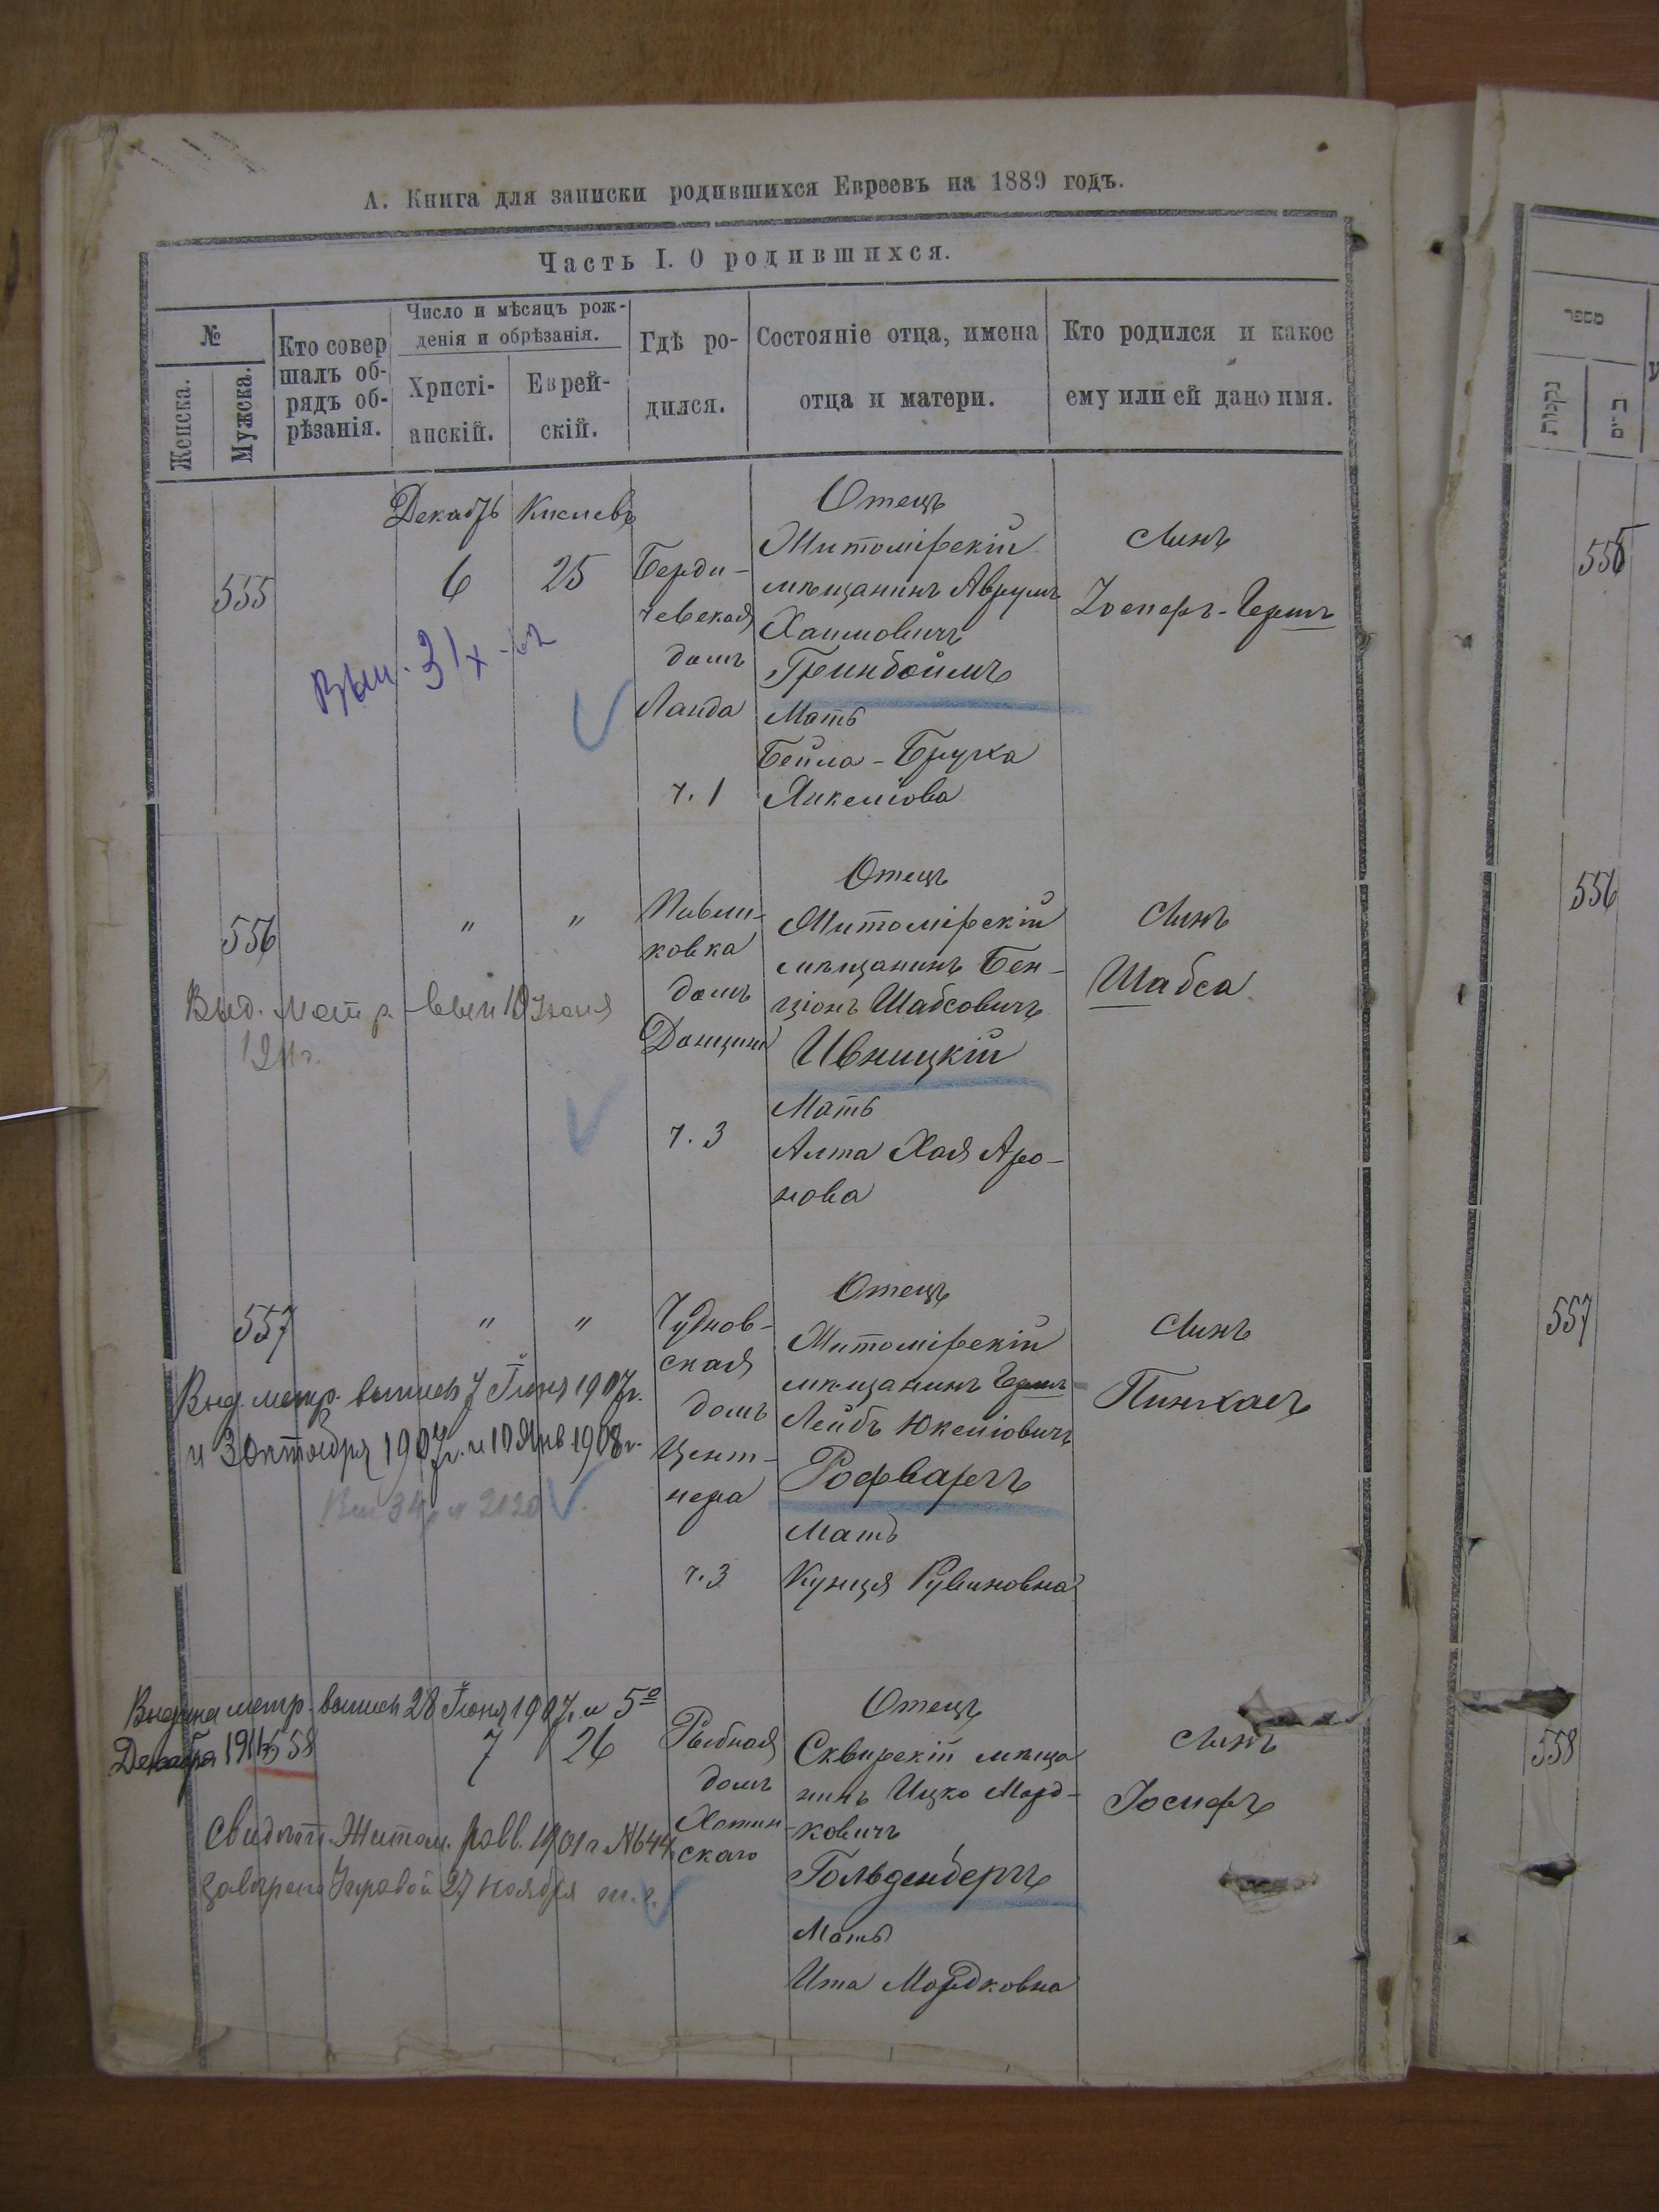 А. Книга для записки родившихся Евреевъ на 1889 годъ.
Часть I. О родившихся.
№
Женска.
Мужска.
Кто совер
шалъ об-
рядъ об-
рѣзанія.
Число и мѣсяцъ рож-
денія и обрѣзанія.
Христі-
анскій.
Еврей-
скій.
Гдѣ ро-
дился.
Состояніе отца, имена
отца и матери.
Кто родился и какое
ему или ей дано имя.
מספר
נקבות
555
Декабрь
6
Кислевъ
25
Берди-
чевская
домъ
Ланда
ч. 1
Отецъ
Житомірскій
мѣщанинъ Аврумъ
Хаимовичъ
Гринбоймъ
Мать
Бейла-Бруха
Янкеліова
Сынъ
Іосифъ-Гершъ
555
556
"
"
Выд. метр. вып 10 Іюня
1911г.
домъ
ч. 3
Отецъ
Житомірскій
мѣщанинъ Бен-
ціонъ Шабсовичъ
Ивницкій
Мать
Алта Хая Аро-
нова
Сынъ
Шабса
556
557
"
"
Выд. метр. выпись 7 Іюня 1907г.
и 3 Октября 1907г. и 10 Янв 1908г.
Чуднов-
ская
домъ
Цент-
нера
ч. 3
Отецъ
Житомірскій
мѣщанинъ Гершъ
Лейбъ Юкеліовичъ
Рофваргъ
Мать
Кунця Рувиновна
Сынъ
Пинхасъ
557
Выдана метр. выпись 28 Іюня 1907. и 5го
Декабря 1911
558
7
26
Свидѣт. Житом. равв. 1901 г №644
заверено Управой 27 Ноября т.г.
Рыбная
домъ
Хотин-
скаго
Отецъ
Сквирскій мѣща
нинъ Ицко Морд-
ковичъ
Гольденбергъ
Мать
Ита Мордковна
Сынъ
Іосифъ
558